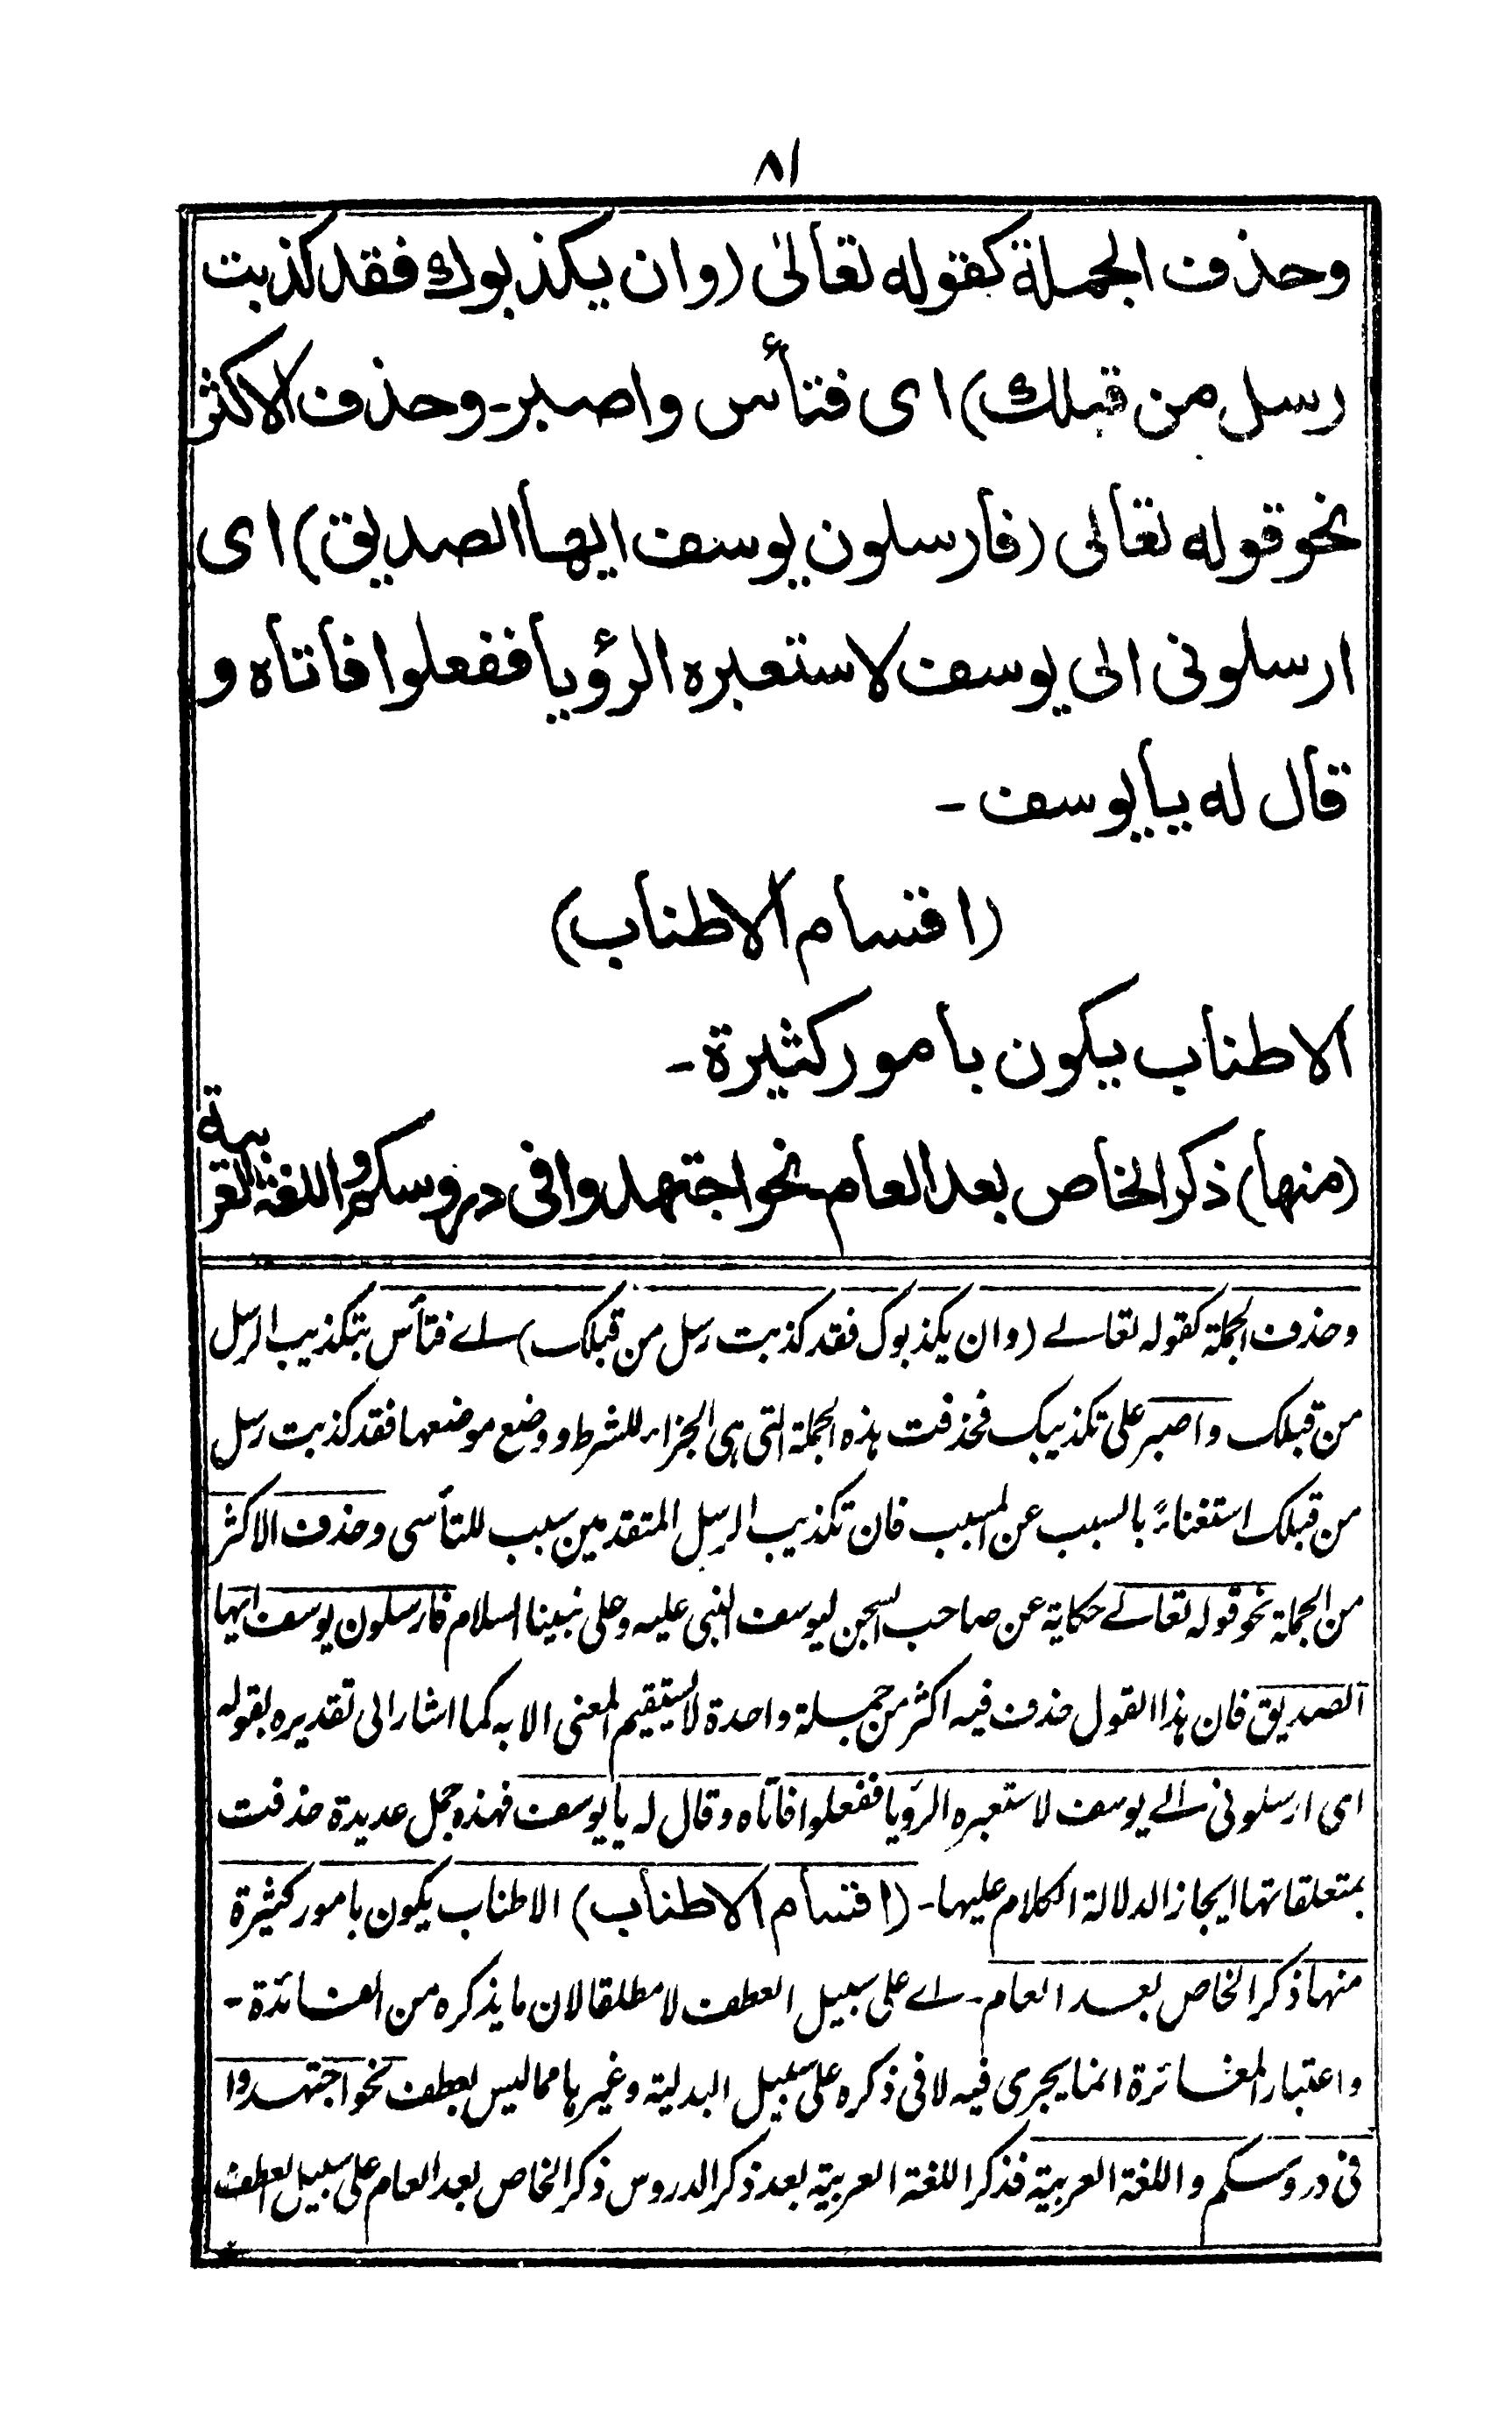 ٨١
وحذف الجملة كقوله تعالىٰ (وان يكذبوك فقد كذبت
رسل من قبلك) اى فتأس واصبر- وحذف الاكثر
نحو قوله تعالى (فارسلون يوسف ايها الصديق) اى
ارسلونى الى يوسف لاستعبره الرؤيا ففعلوا فاتاه و
قال له يايوسف -
(اقسام الاطناب)
الاطناب يكون بامور كثيرة -
(منها) ذكر الخاص بعد العام نحو اجتهدوا فى دروسكم واللغة العربية
وحذف الجملة كقوله تعالے (وان يكذبوك فقد كذبت رسل من قبلك) اے فتأس بتكذيب الرسل
من قبلك واصبر على تكذيبك فحذفت هذه الجملة التى هى الجزاء للشرط ووضع موضعها فقد كذبت رسل
من قبلك استغناءً بالسبب عن المسبب فان تكذيب الرسل المتقدمين سبب للتأسى وحذف الاكثر
من الجملة نحو قوله تعالے حكاية عن صاحب السجن ليوسف النبى عليه وعلى نبينا السلام فارسلون يوسف ايها
الصديق فان هذا القول حذف فيه اكثر من جملة واحدة لا يستقيم المعنى الا به كما اشار الى تقديره بقوله
اى ارسلونى الے يوسف لاستعبره الرؤيا ففعلوا فاتاه وقال له يا يوسف فهذه جمل عديدة حذفت
بمتعلقاتها ايجازا لدلالة الكلام عليها - (اقسام الاطناب) الاطناب يكون بامور كثيرة
منها ذكر الخاص بعد العام - اے على سبيل العطف لا مطلقا لان ما يذكره من الفائدة -
واعتبار المغائرة انما يجرى فيه لا فى ذكره على سبيل البدلية وغيرها مما ليس بعطف نحو اجتهدوا
فى دروسكم واللغة العربية فذكر اللغة العربية بعد ذكر الدروس ذكر الخاص بعد العام على سبيل العطف